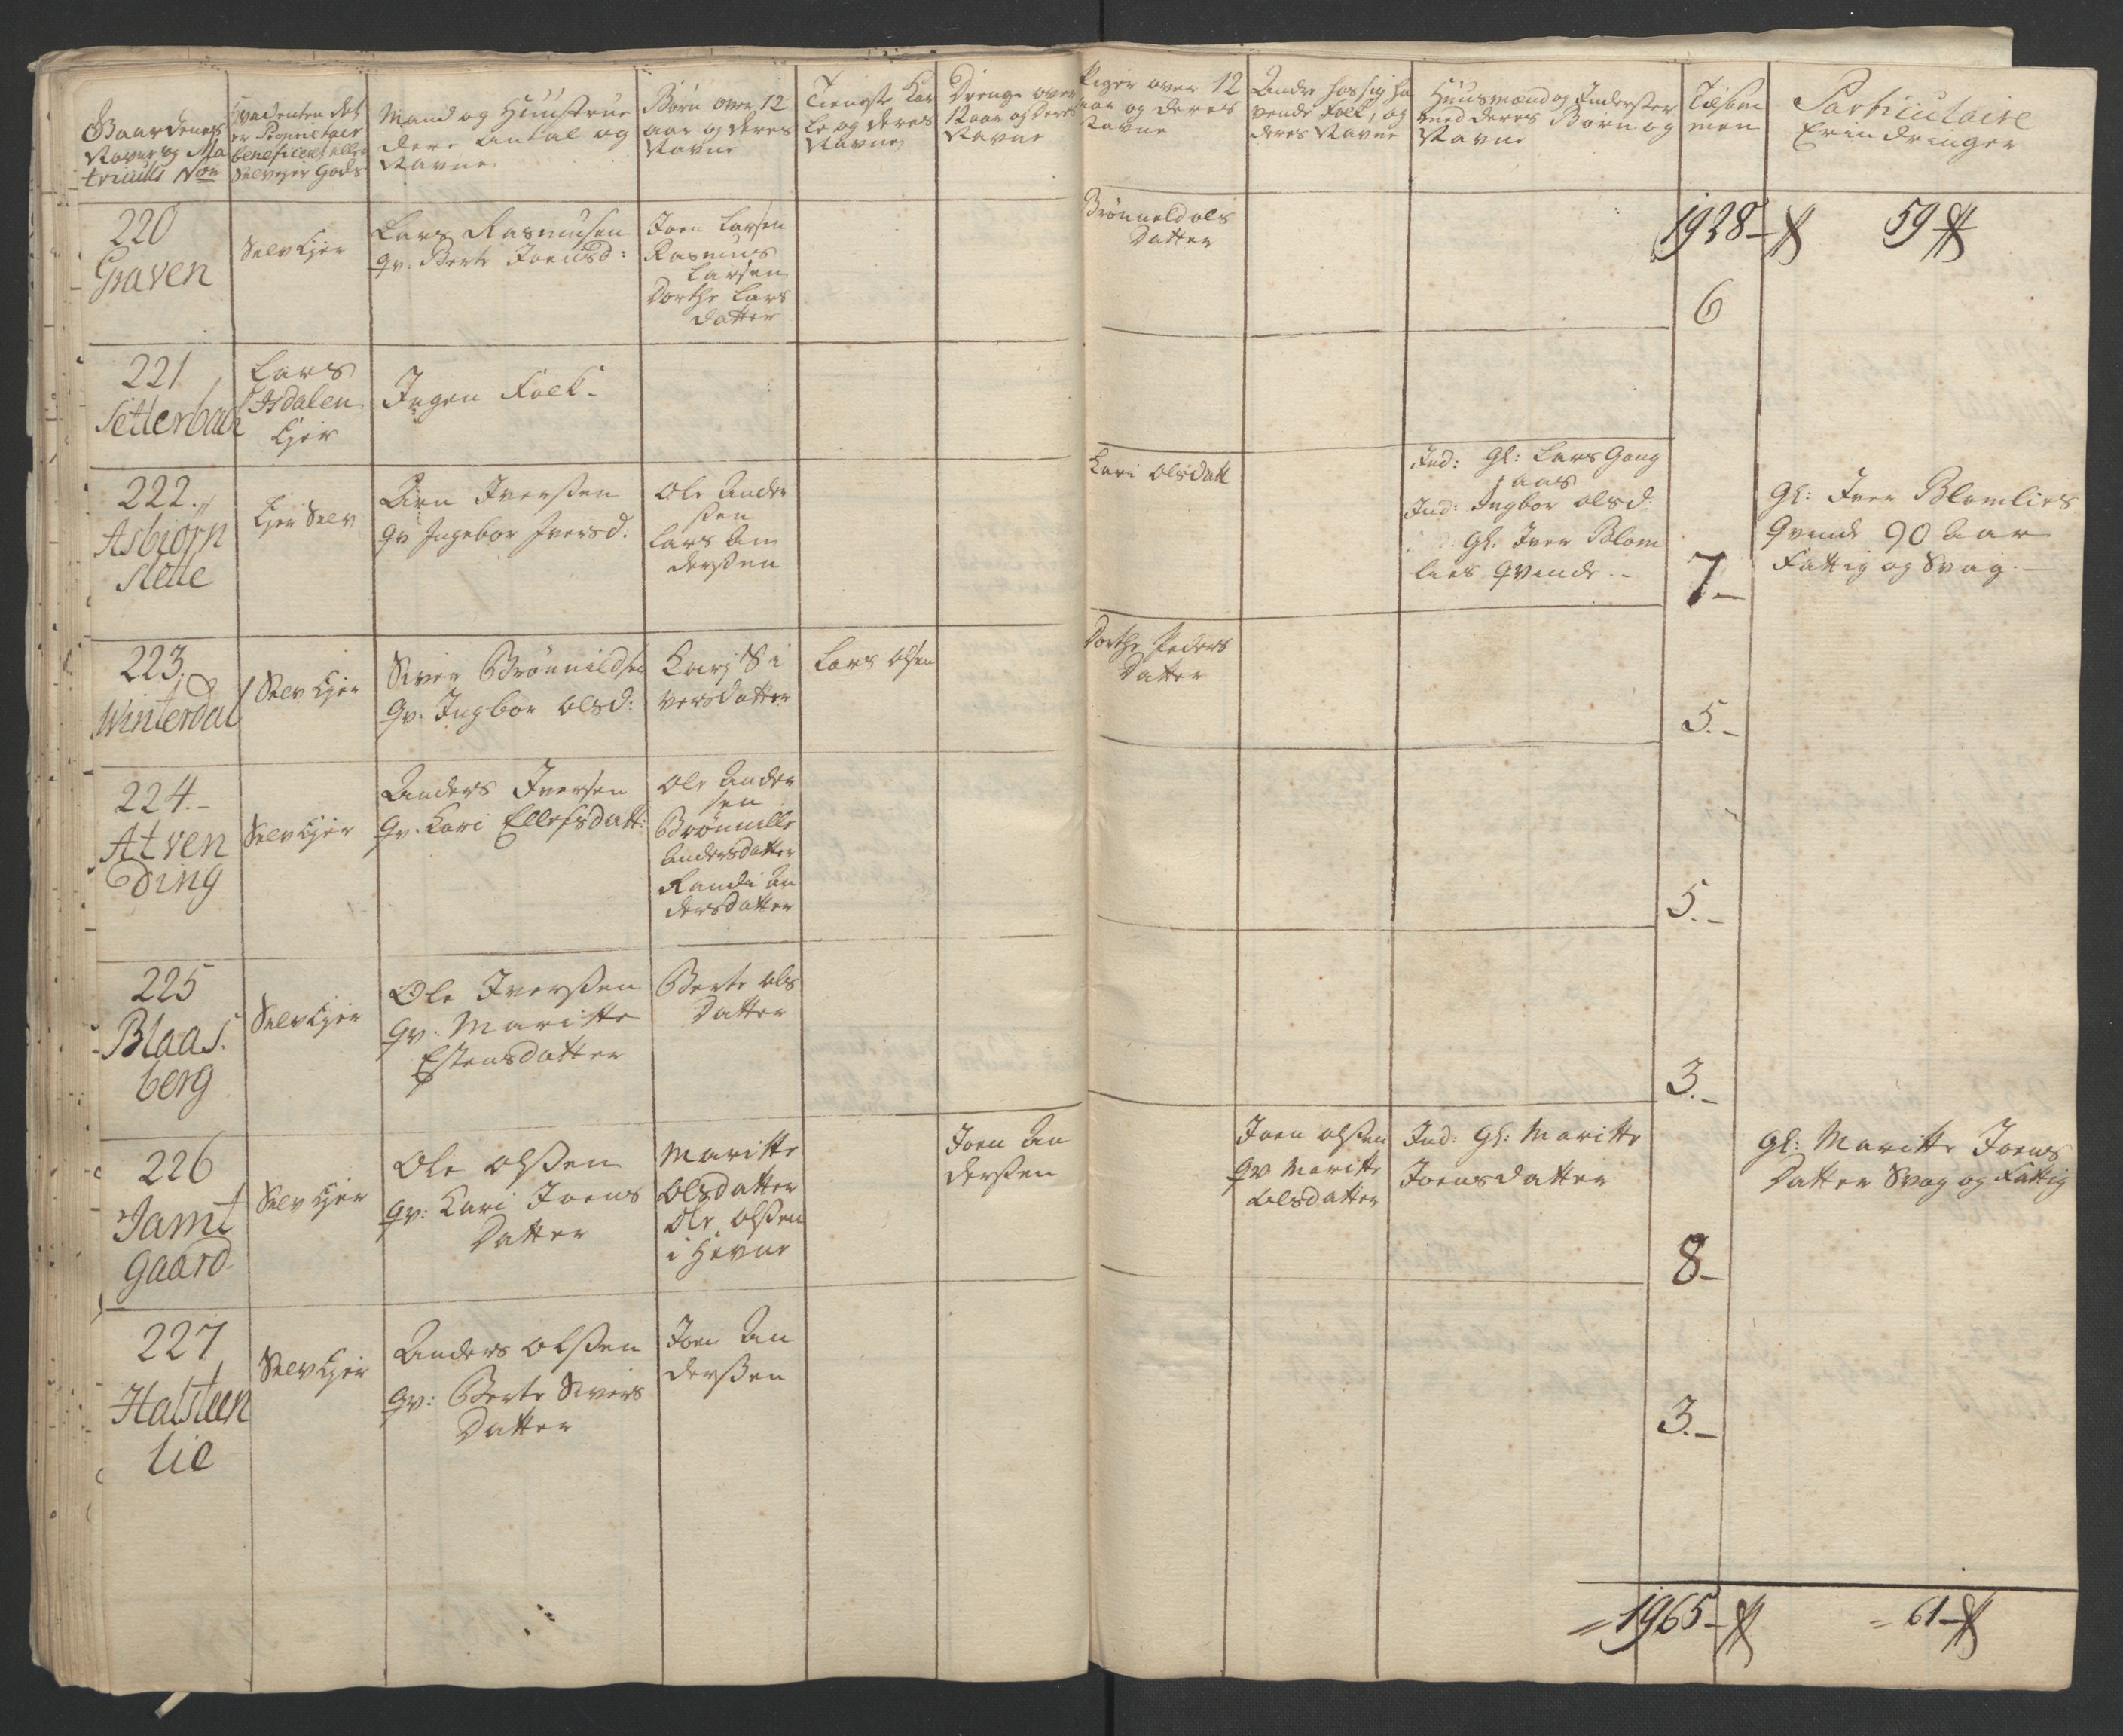 Gaardenes
Navne og Ma
triculs Non
Hvadenten det
er Proprietair
beneficeret eller
Selvejer Gods
Mand og Huustrue
dere Antal og
Navne
Børn over 12
aar og deres
Navne
Tieneste Kar
le og deres
Navne
Drenge over
12 aar og deres
Navne
Piger over 12
aar og deres
Navne
Andre hos sig ha
vende Folk, og
deres Navne
Huusmænd og Inderster
med deres Børn og
Navne
Tilsam
men
Particulaire
Erindringer
1928
59
220
Graven
Selv Ejer
Lars Rasmusen
Qv. Berte Joensd:
Joen Larsen
Rasmus
Larsen
Dorthe Lars
datter
Brønneld ols
Datter
6
221
Setterbak
Lars
Isdalen
Ejer
Ingen Folk.
222.
Asbiørn
slette
Ejer Selv
Arn Iverssen
Qv Ingebor Iversd.
Ole Ander
ssen
Lars An
derssen
Kari Olsdatt
Ind: Gl: Lars Gang
aas
Ind: Ingbor olsd:
Gl: Iver Blom
lies Qvinde
7.
Gl: Iver Blomlies
Qvinde 90 Aar
Fattig og Svag.
223.
Winterdal
Selv Ejer
Siver Brønnildsen
Qv. Ingbor olsd:
Karj Si
versdatter
Lars olsen
Dorthe Peders
Datter
5.
224.
Atven
Eding
Selv Ejer
Anders Iversen
Qv. Kari Ellefsdatt:
Ole Ander
sen
Brønnille
Andersdatter
Randi An
dersdatter
5.
225
Blaas
berg
Selv Ejer
Ole Iverssen
Qv. Maritte
Estensdatter
Berte ols
Datter
3.
226
Jamt
gaard
Selv Ejer
Ole olssen
Qv: Kari Joens
Datter
Maritte
Olsdatter
Ole olssen
i Hevne
Joen An
derssen
Joen olssen
Qv Maritte
Olsdatter
Ind: Gl: Maritte
Joensdatter
8
Gl: Maritte Joens
Datter Svag og Fattig
227
Halsteen
lie
Selv Ejer
Anders olssen
Qv: Berte Sivers
Datter
Joen An
derssen
3.
= 1965
= 61